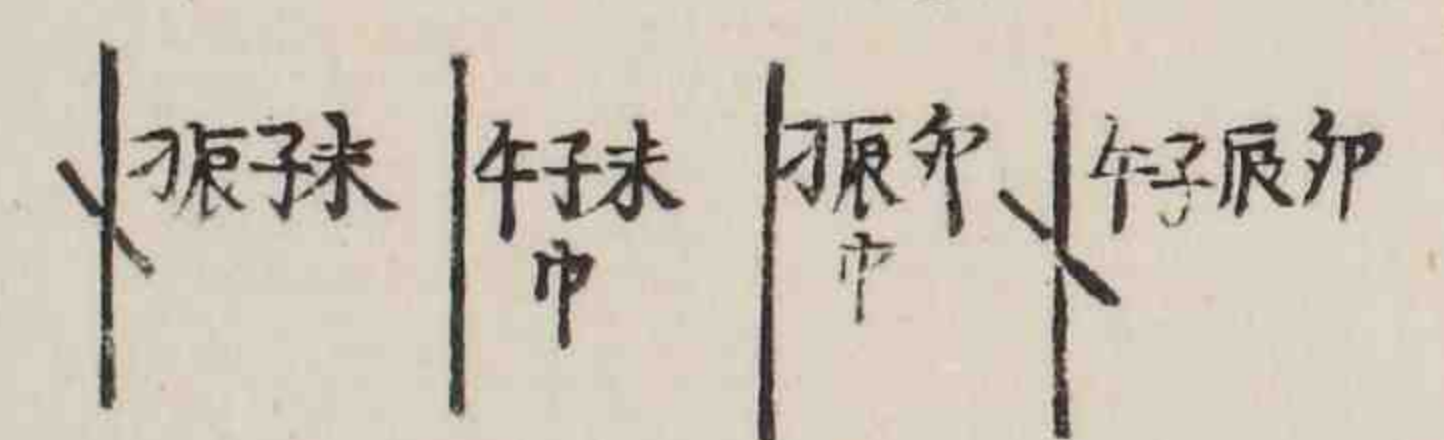 刁辰子未
午子未
巾
刁辰卯
巾
午子辰卯